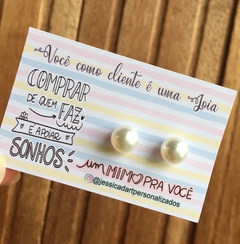 Você como cliente é uma Joia
COMPRAR
DE QUEM FAZ
É APOIAR
SONHOS
um MIMO PRA VOCÊ
@jessicadartpersonalizados